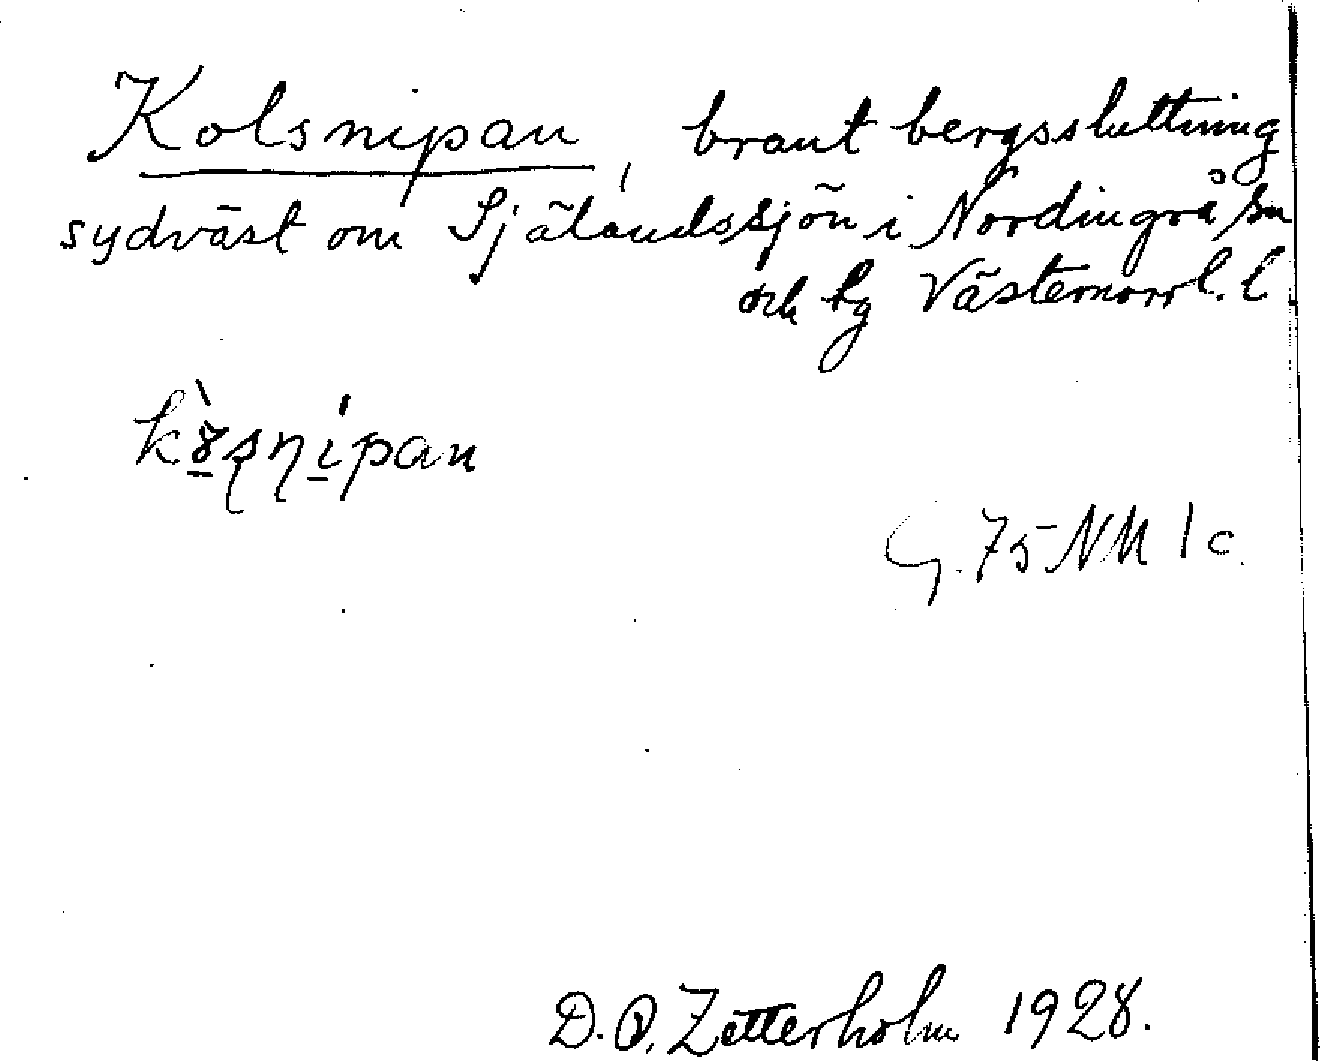 Kolsnipan, brant bergssluttning
sydväst om Själandssjön i Nordingrå sn
och hg Västernorrl. l.
kò̱ꞩɳı̱́pan
G. 75 NM 1 c.
D. O. Zetterholm 1928.